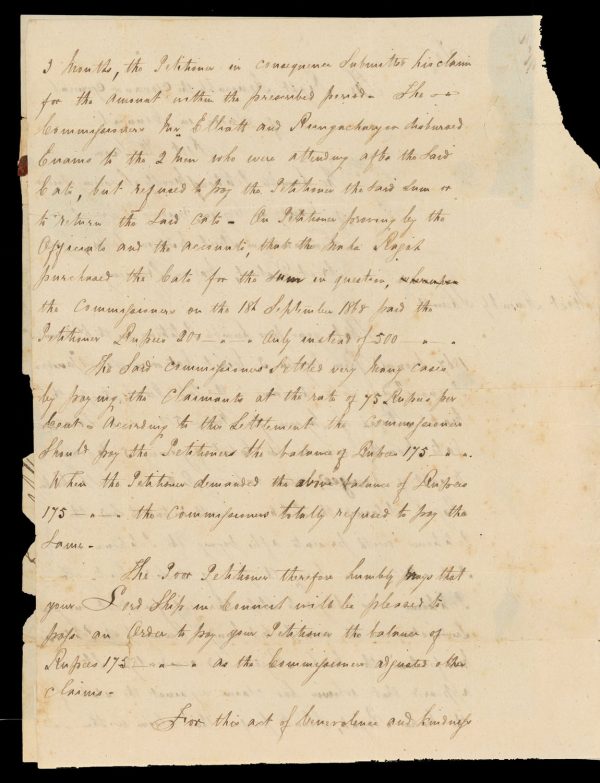 3 Months, the Petitioner in consequence Submitted his claim
for the amount within the prescribed period - The - -
Commissioners Mr. Elliott and Rungacharyar disbursed
Enams to the 2 men who were attending after the Said
Cats, but refused to pay the Petitioner the Said Sum or
to return the Said Cats - On Petitioner proving by the
Officients and the accounts, that the Maha Rajah
purchased the Cats for the Sum in question,
the Commissioners on the 18th September 1868 paid the
Petitioner Rupees 200 - " - " Only instead of 500 - " - "
The Said Commissioners Settled very many cases
by paying the Claimants at the rate of 75 Rupees per
Cent - According to this Settlement the Commissioners
Should pay the Petitioners the balance of Rupees 175 " - ".
When the Petitioner demanded the above balance of Rupees
175 - " - " - the Commissioners totally refused to pay the
Same -
The Poor Petitioner therefore humbly prays that
your Lord Ship in Council will be pleased to
pass an Order to pay your Petitioner the balance of
Rupees 175 - " - " - " as the Commissioners adjusted other
claims -
For this act of benevolence and kindness